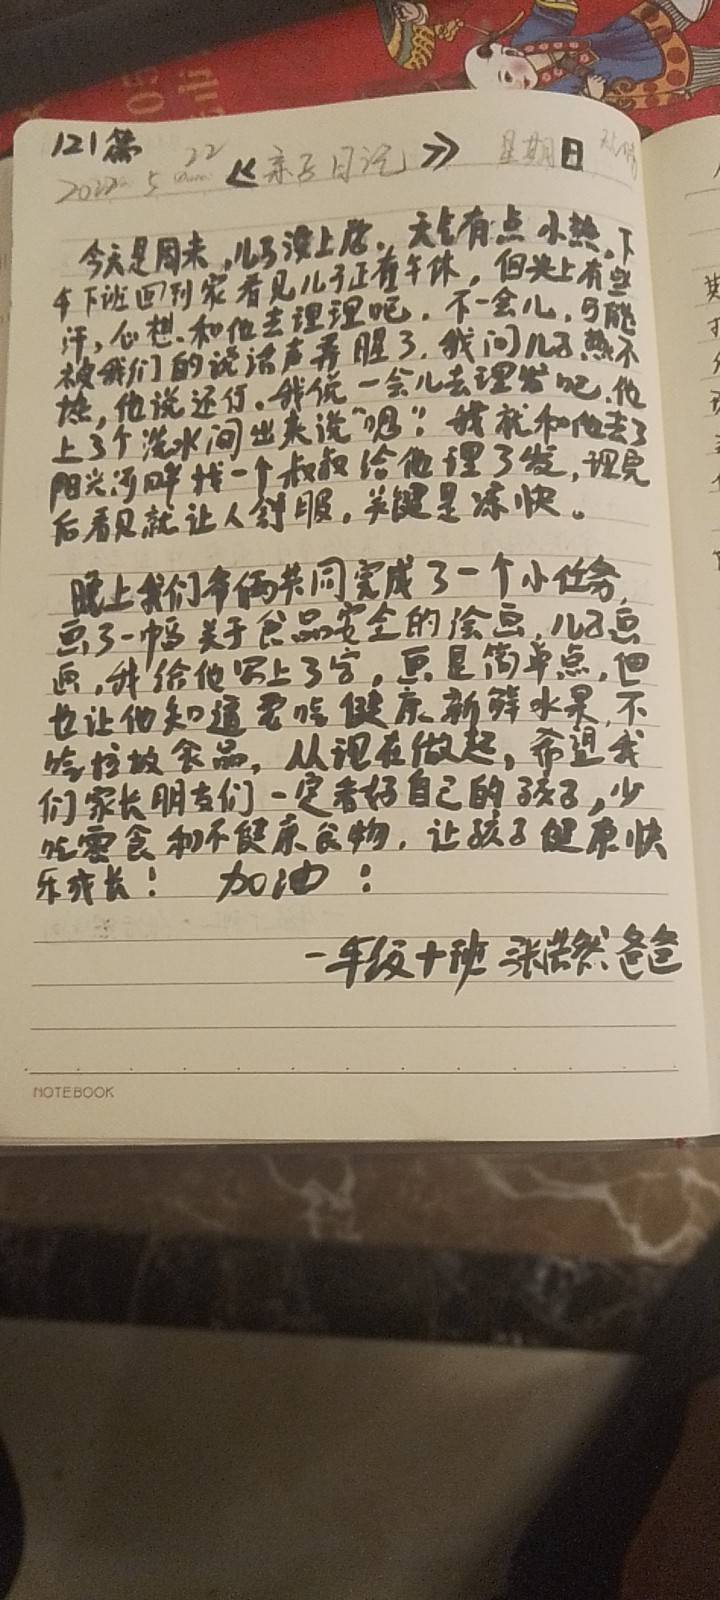 121篇
2022 5 22 《亲子日记》 星期日
今天是周末,儿子没上学,天气有点小热,下
午下班回到家看见儿子正有午休,但头上有些
汗,心想,和他去理理吧,不一会儿,可能
被我们的说话声弄醒了,我问儿子,热不
热,他说还行。我说一会儿去理发吧,他
上了个洗水间出来说"嗯"!我就和他去了
阳光河畔找一个叔叔给他理了发,理完
后看见就让人舒服,关键是凉快。
晚上我们爷俩共同完成了一个小任务,
画了一幅关于食品安全的绘画,儿子画
画,我给他写上了字,画是简单点,但
也让他知道要吃健康新鲜水果,不
吃垃圾食品,从现在做起,希望我
们家长朋友们一定看好自己的孩子,少
吃零食和不健康食物,让孩子健康快
乐成长! 加油!
一年级十班 张浩然爸爸
NOTEBOOK
05